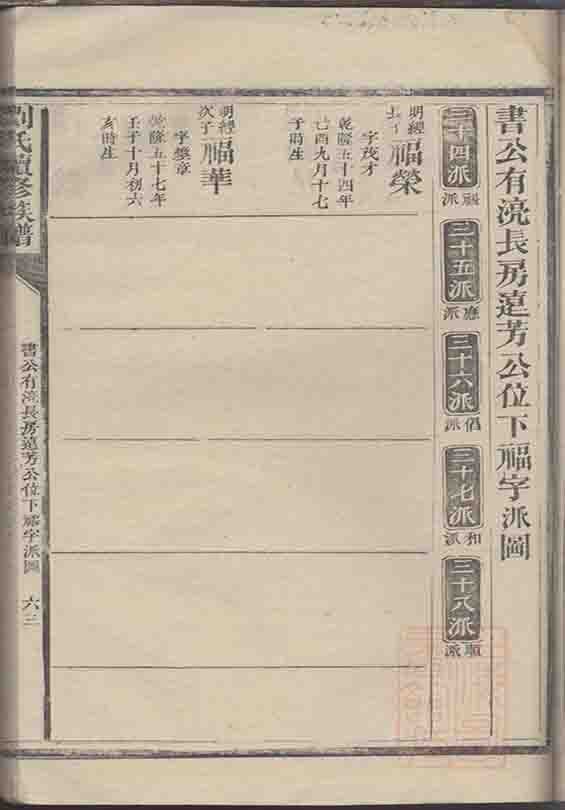 書公有浣長房遠芳公位下福字派圖
三十四派
福派
三十五派
應派
三十六派
倡派
三十七派
和派
三十八派
順派
明經
長子
福榮
字茂才
乾隆五十四年
己酉九月十七
子時生
明經
次子
福華
乾隆五十七年
壬子十月初六
亥時生
劉氏續修族譜
書公有浣長房遠芳公位下福字派圖
六三